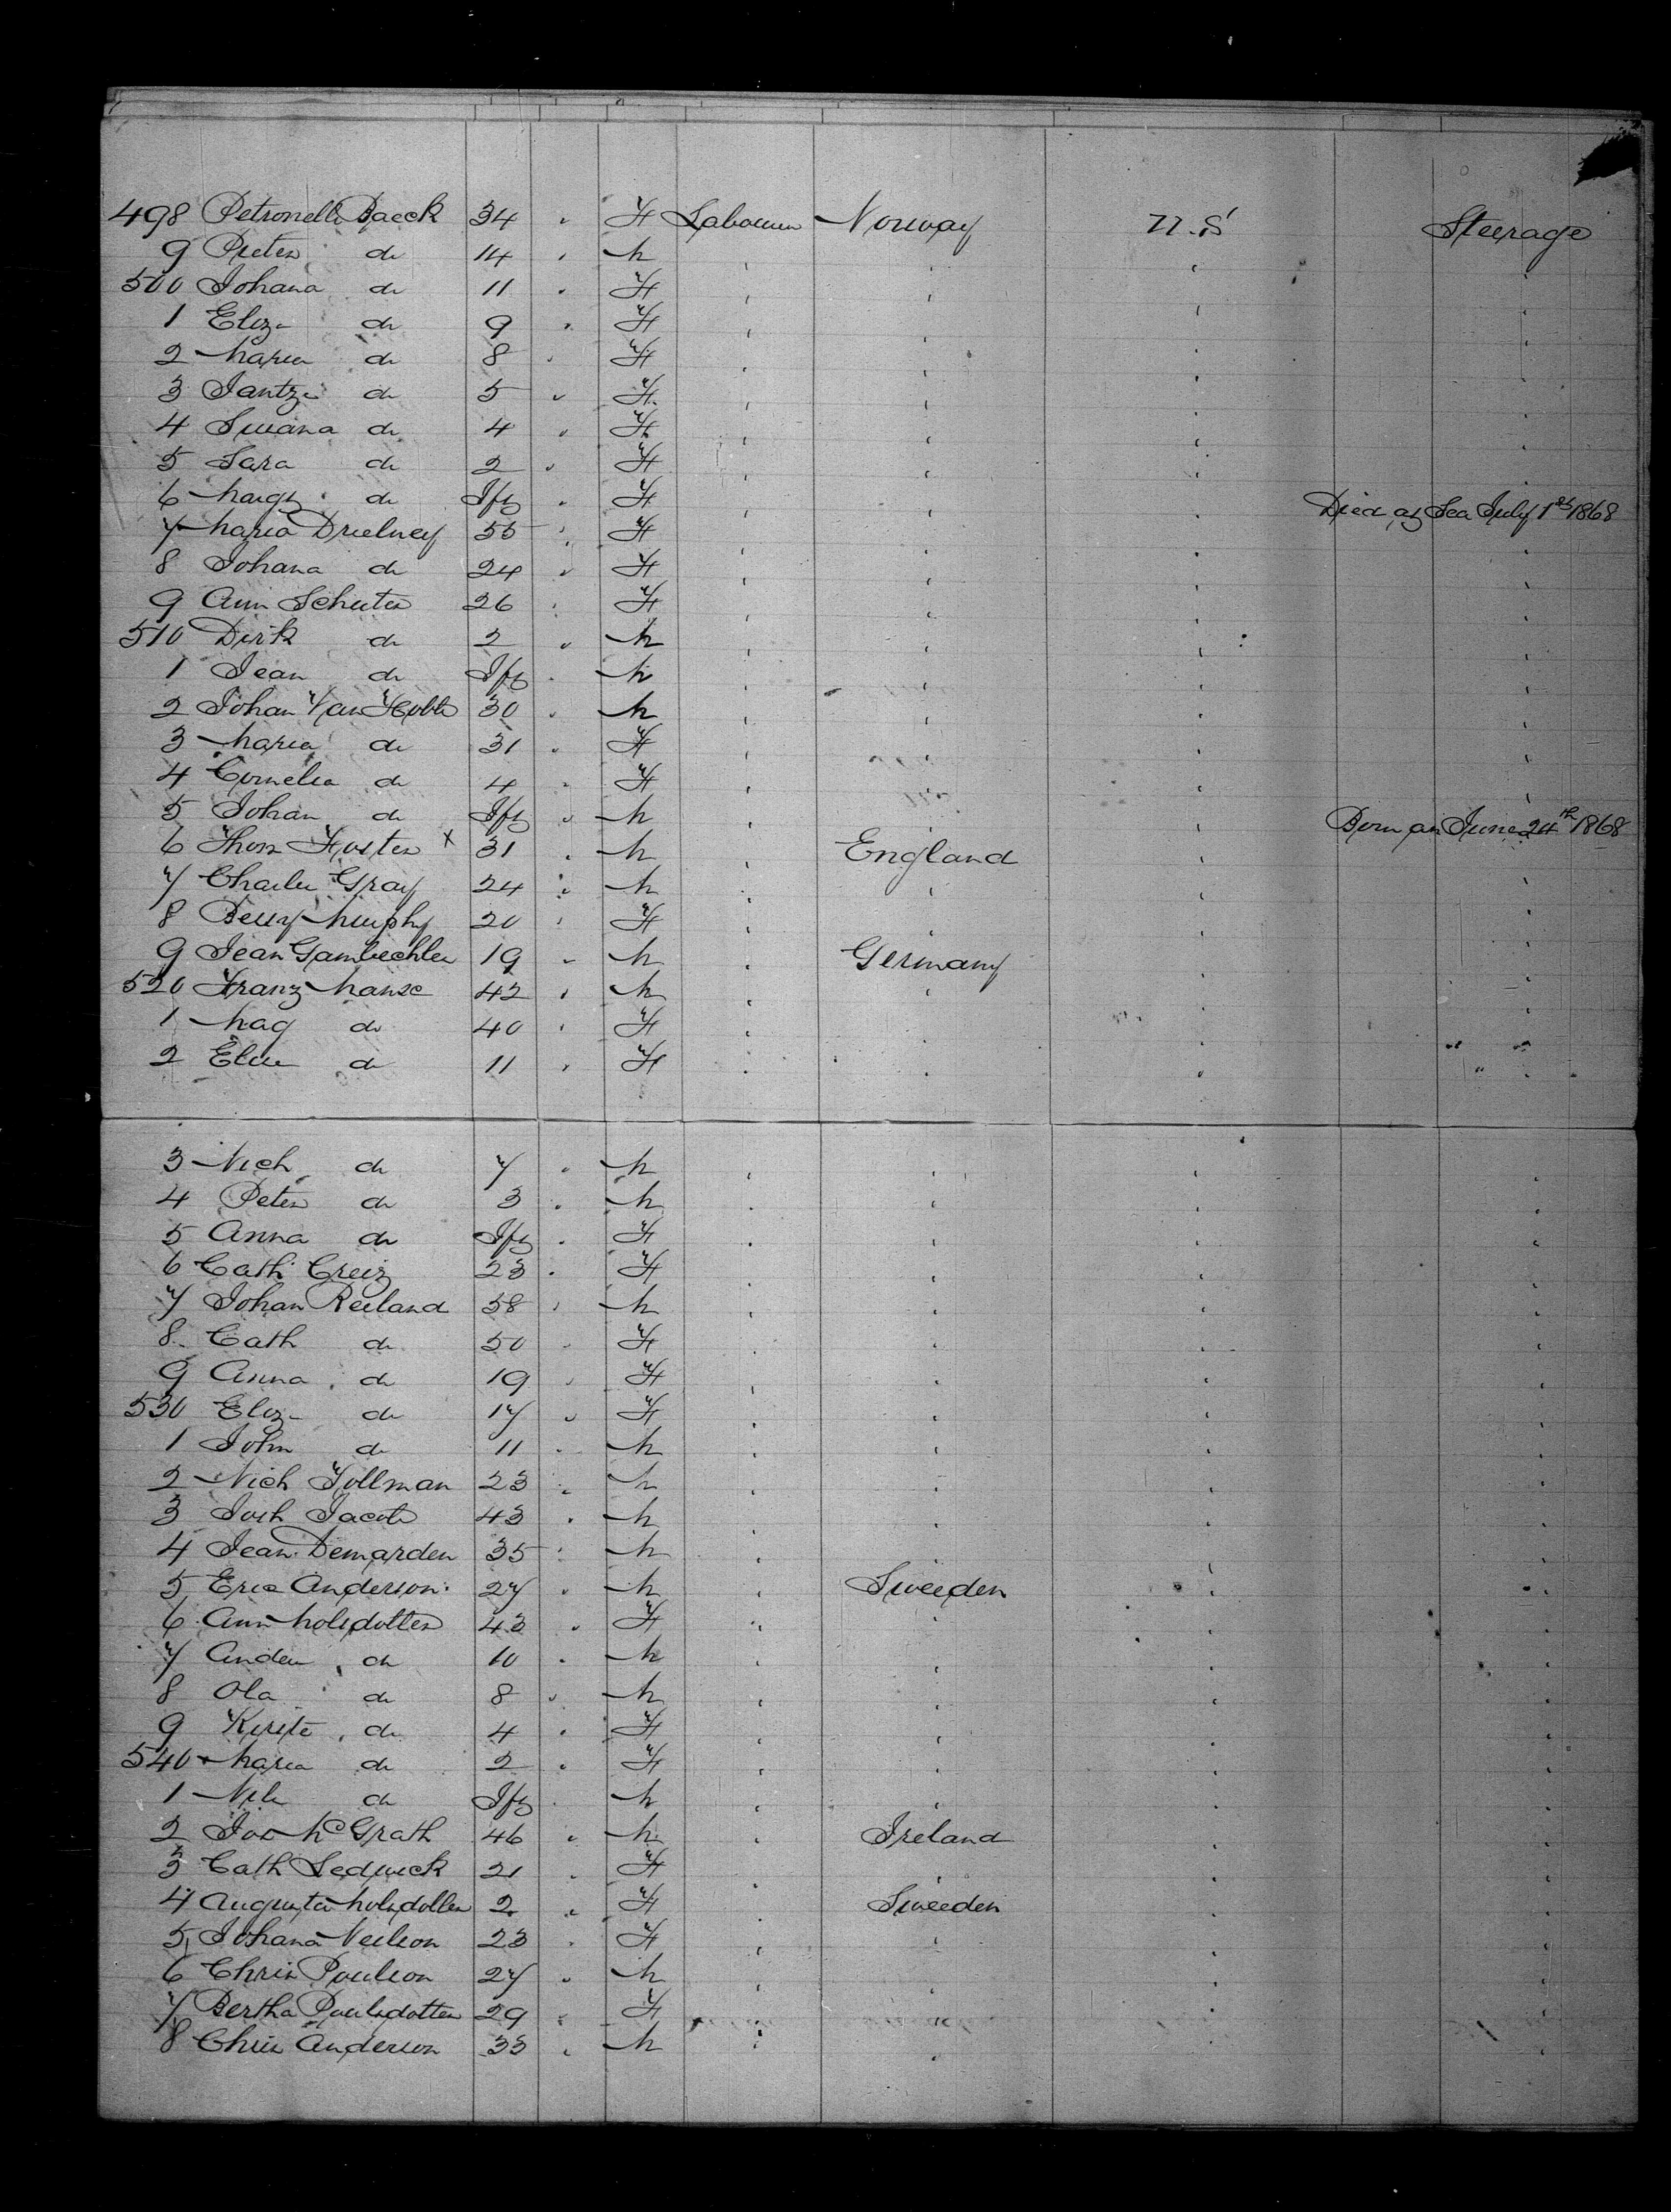 498 Petronella Baeck 34 " F Labourer Norway U.S Steerage
9 Pieter do 14 " M " " " "
500 Johana do 11 " F " " " "
1 Eliza do 9 " F " " " "
2 Maria do 8 " F " " " "
3 Jantze do 5 " F " " " "
4 Swana do 4 " F " " " "
5 Sara do 2 " F " " " "
6 Margt do Ift " F " " " Died at Sea July 1st 1868
7 Maria 55 " F " " " "
8 Johana do 24 " F " " " "
9 Ann Schuter 26 " F " " " "
510 Dirk do 2 " M " " " "
1 Jean do Ift " M " " " "
2 Johan Van 30 " M " " " "
3 Maria do 31 " F " " " "
4 Cornelia do 4 " F " " " "
5 Johan do Ift " M " " " Born on June 24th 1868
6 Thos Foster x 31 " M " England " "
7 Charles Gray 24 " M " " " "
8 Murphy 20 " F " " " "
9 Jean Gambechler 19 " M " Germany " "
520 Franz Manse 42 " M " " " "
1 Mag do 40 " F " " " "
2 Elise do 11 " F " " " "
3 Nich do 7 " M " " " "
4 Peter do 3 " M " " " "
5 Anna do Ift " F " " " "
6 Cath Creiz 23 " F " " " "
7 Johan Reiland 58 " M " " " "
8 Cath do 50 " F " " " "
9 Anna do 19 " F " " " "
530 Eliza do 17 " F " " " "
1 John do 11 " M " " " "
2 Nich Tollman 23 " M " " " "
3 Josh Jacobs 43 " M " " " "
4 Jean Demarden 35 " M " " " "
5 Eric Anderson 27 " M " Sweeden " "
6 Ann Molsdotter 43 " F " " " "
7 Anders do 10 " M " " " "
8 Ola do 8 " M " " " "
9 Kirste do 4 " F " " " "
540 Maria do 2 " F " " " "
1 Nils do Ift " M " " " "
2 Jos McGrath 46 " M " Ireland " "
3 Cath Sedwick 21 " F " " " "
4 Augusta Molsdotter 2 " F " Sweeden " "
5 Johana Neilson 23 " F " " " "
6 Chris Poulson 27 " M " " " "
7 Bertha Poulsdotter 29 " F " " " "
8 Chris Anderson 33 " M " " " "